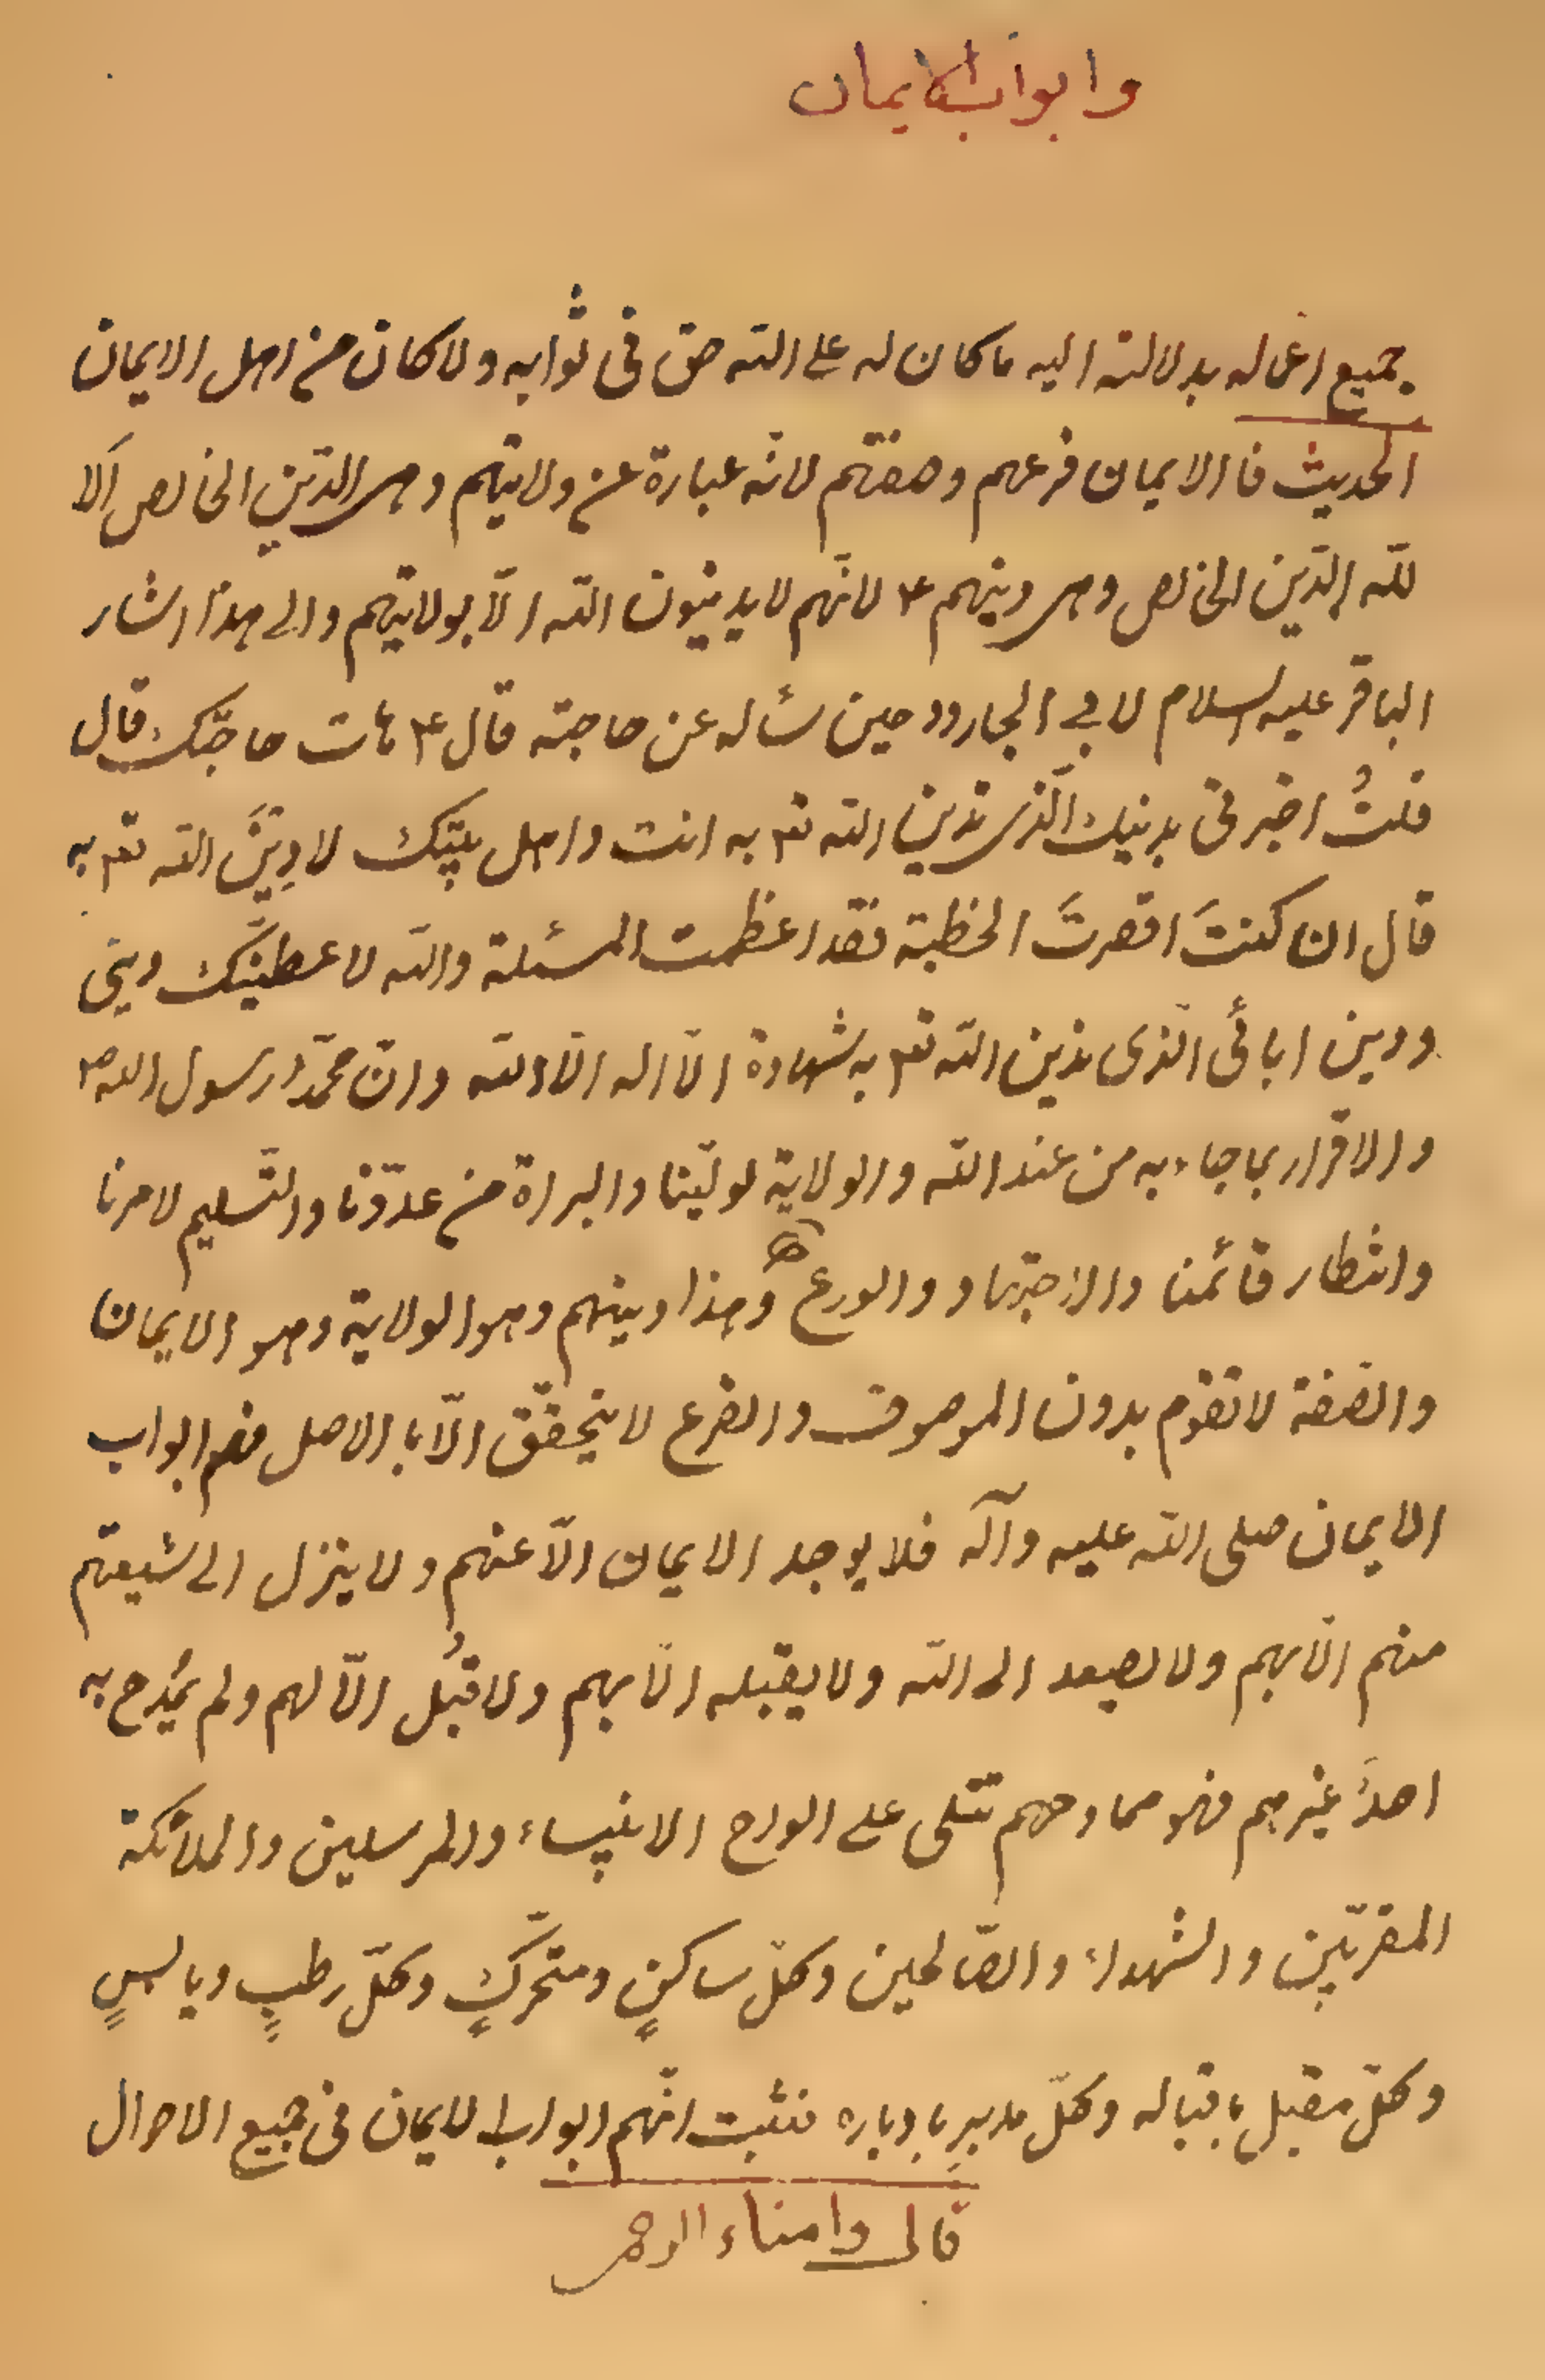 وابواب الايمان
جميع اعماله بدلالته اليه ما كان له على الله حق فى ثوابه ولا كان من اهل الايمان
الحديث فا الايمان فرعهم وصفتهم لانّه عبارة عن ولايتهم وهى الدّين الخالص اَلا
للّه الدّين الخالص وهى دينهم ع لانّهم لا يدينون اللّه الّا بولايتهم والى هذا اشار
الباقر عليه السلام لابي الجارود حين سأله عن حاجته قال ع هات حاجتك قال
قلتُ اخبرنى بدينك الّذى تدين اللّه تع به انت واهل بيتك لادينَّ اللّه تع به
قال ان كنتَ اقصرتَ الخطبة فقد اعظمت المسئلة واللّه لاعطينّك دينى
ودين ابائى الّذى ندين اللّه تع به شهادة الّا اله الّا اللّه وانّ محمّدا رسول اللّه ص
والاقرار بما جاء به من عند اللّه والولاية لوليّنا والبراة من عدوّنا والتّسليم لامرنا
وانتظار قائمنا والاجتهاد والورع وهذا دينهم وهو الولاية وهو الايمان
والصّفة لا تقوم بدون الموصوف والفرع لا يتحقّق الّا با الاصل فهم ابواب
الايمان صلى اللّه عليه وآله فلا يوجد الايمان الّا عنهم ولا ينزل الى شيعتهم
منهم الّا بهم ولا يصعد الى اللّه ولا يقبله الّا بهم ولا قبُل الّا لهم ولم يُمدح به
احدٌ غيرهم فهو ممادحهم تتلى على الواح الانبياء والمرسلين والملائكة
المقربّين والشهداء والصّالحين وكلّ ساكنٍ ومتحرّكٍ وكلّ رطبٍ ويابسٍ
وكلّ مقبل باقباله وكلّ مدبرٍ بادباره فثبت انّهم ابواب الايمان فى جميع الاحوال
قال وامناء الرحمن